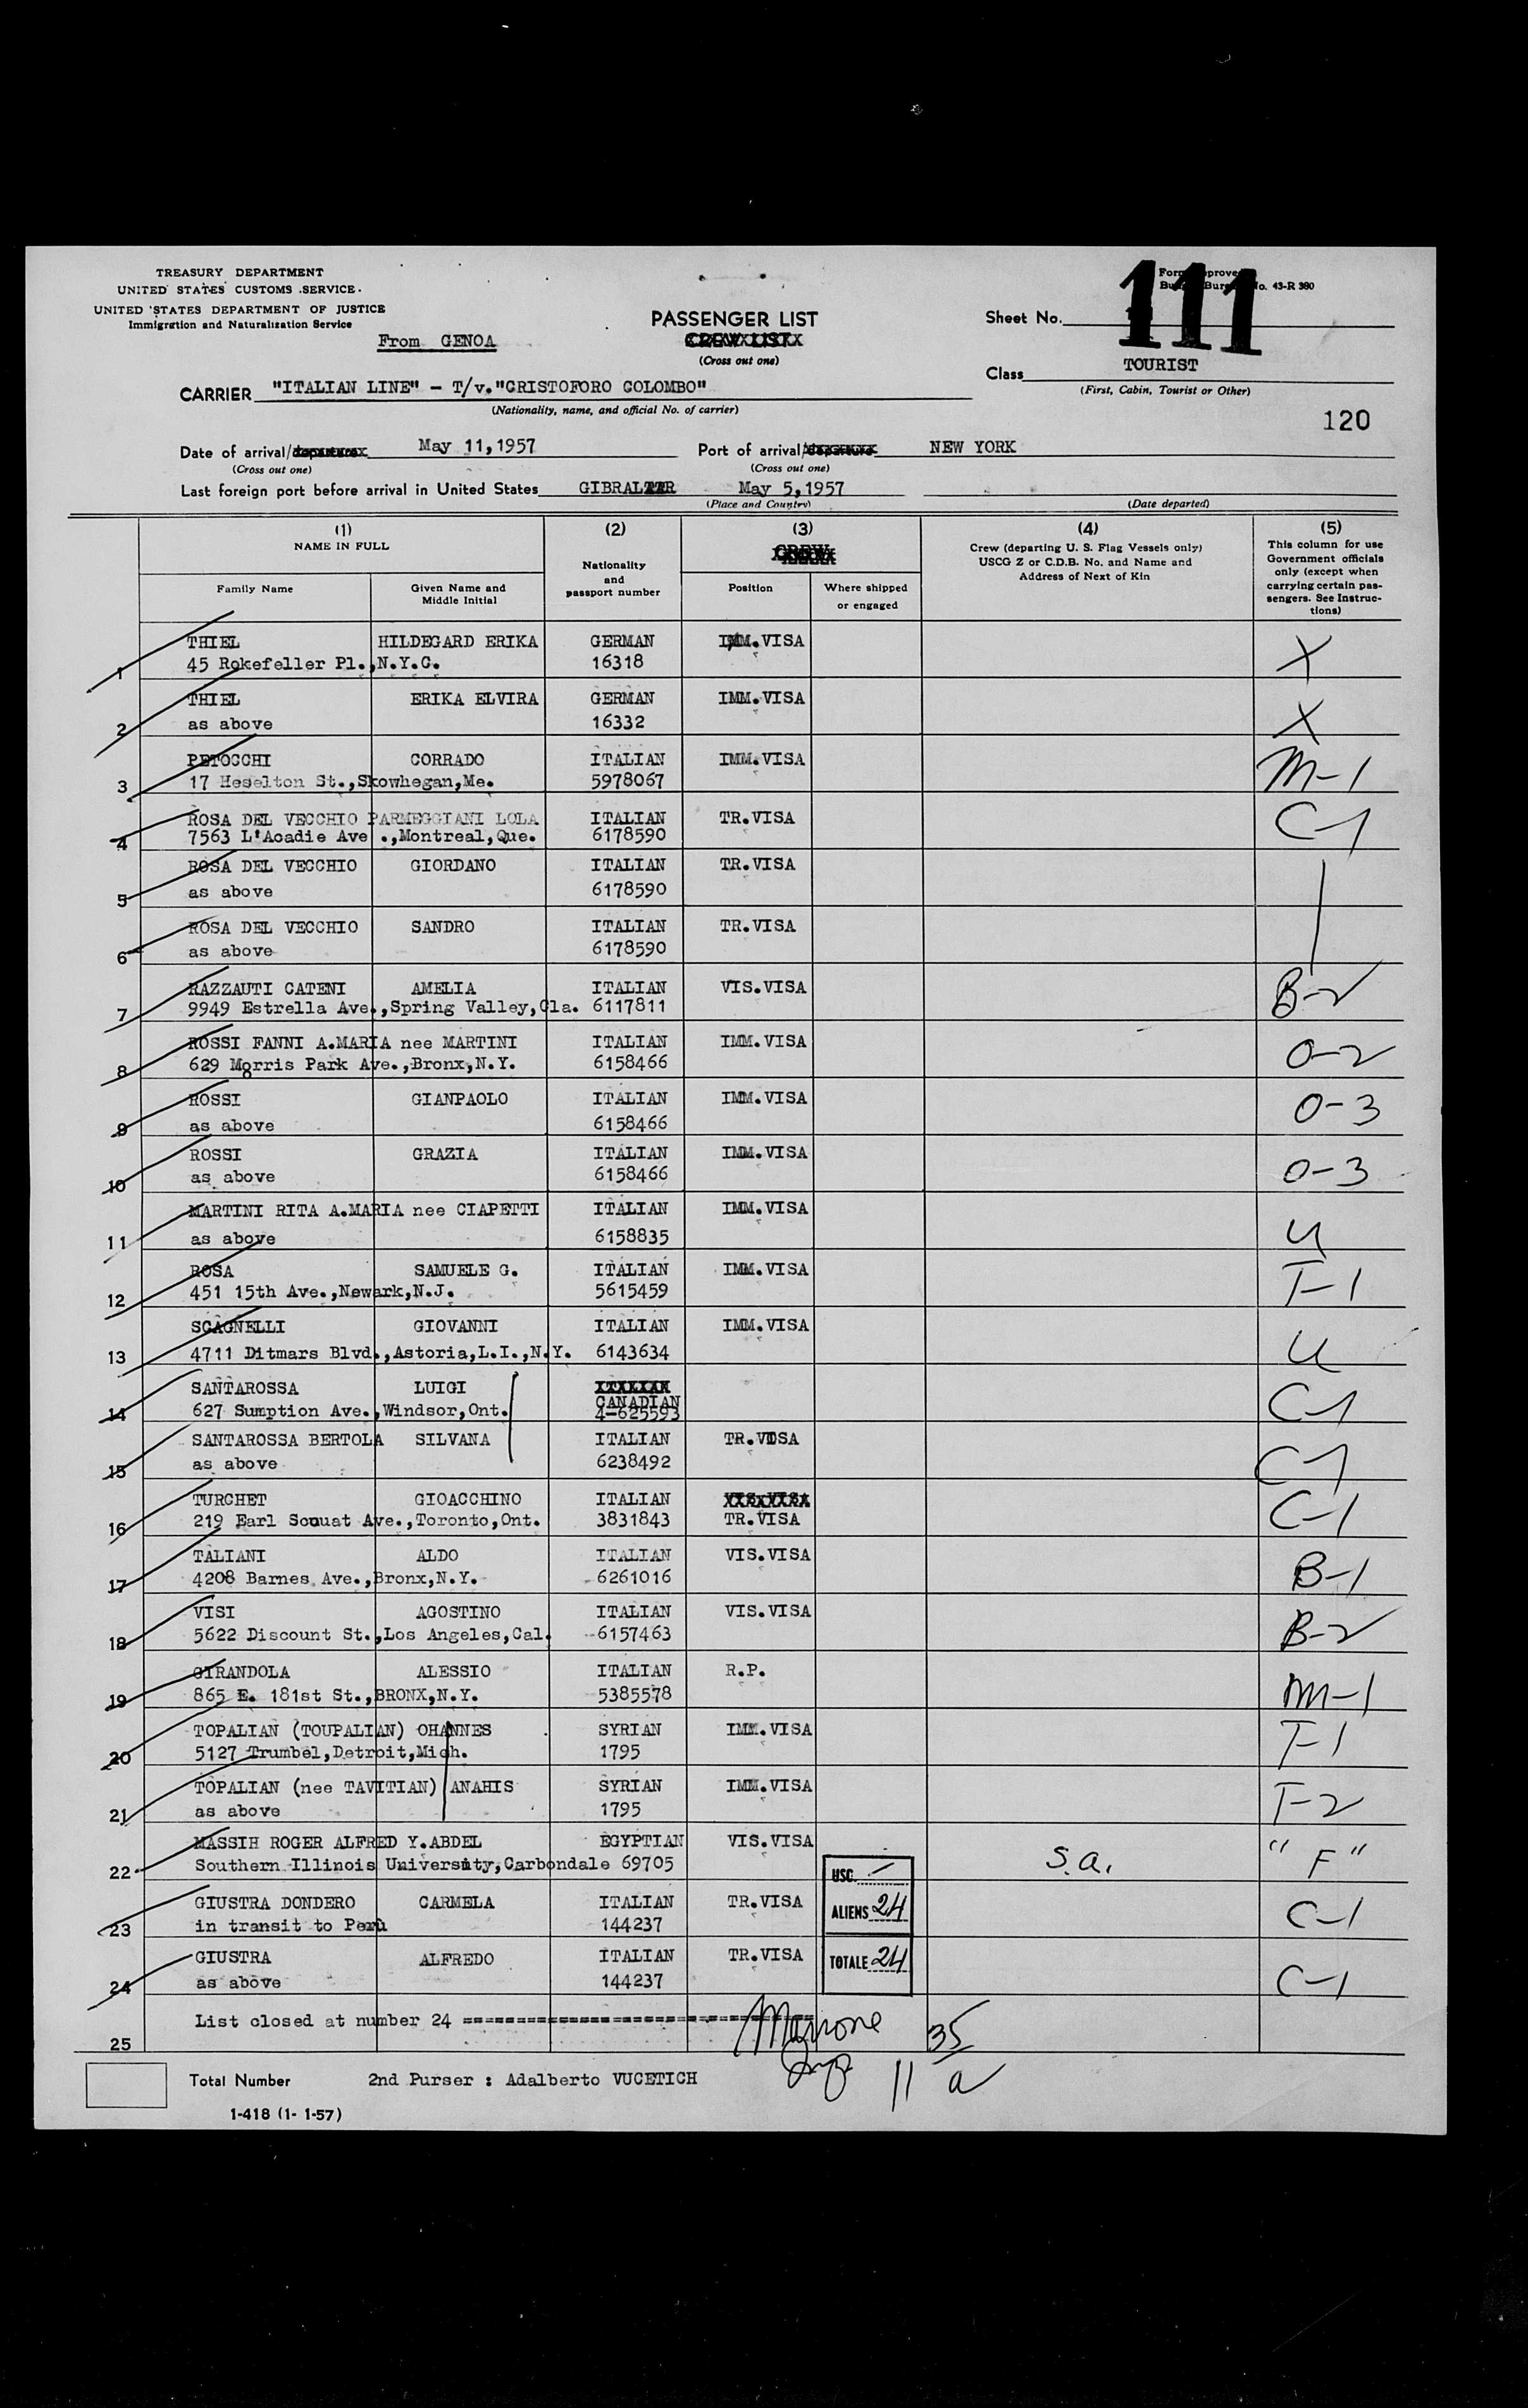 TREASURY DEPARTMENT
UNITED STATES CUSTOMS SERVICE
UNITED STATES DEPARTMENT OF JUSTICE
Immigration and Naturalization Service
From GENOA
PASSENGER LIST
CREW LIST
(Cross out one)
Form Approved
Budget Bureau No. 43-R 380
Sheet No. 111
Class TOURIST
(First, Cabin, Tourist or Other)
CARRIER "ITALIAN LINE" - T/v."CRISTOFORO COLOMBO"
(Nationality, name, and official No. of carrier)
120
Date of arrival/departure May 11,1957 Port of arrival/departure NEW YORK
(Cross out one) (Cross out one)
Last foreign port before arrival in United States GIBRALTAR May 5,1957
(Place and Country) (Date departed)
(1) (2) (3) (4) (5)
NAME IN FULL
Family Name
Given Name and Middle Initial
Nationality and passport number
CREW
Position
Where shipped or engaged
Crew (departing U. S. Flag Vessels only)
USCG Z or C.D.B. No. and Name and
Address of Next of Kin
This column for use
Government officials
only (except when
carrying certain pas-
sengers. See Instruc-
tions)
1 THIEL HILDEGARD ERIKA GERMAN IMM.VISA X
45 Rokefeller Pl.,N.Y.C. 16318
2 THIEL ERIKA ELVIRA GERMAN IMM.VISA X
as above 16332
3 PETOCCHI CORRADO ITALIAN IMM.VISA M-1
17 Heselton St.,Skowhegan,Me. 5978067
4 ROSA DEL VECCHIO PARMEGGIANI LOLA ITALIAN TR.VISA C-1
7563 L'Acadie Ave.,Montreal,Que. 6178590
5 ROSA DEL VECCHIO GIORDANO ITALIAN TR.VISA
as above 6178590
6 ROSA DEL VECCHIO SANDRO ITALIAN TR.VISA
as above 6178590
7 RAZZAUTI CATENI AMELIA ITALIAN VIS.VISA B-2
9949 Estrella Ave.,Spring Valley,Cla. 6117811
8 ROSSI FANNI A.MARIA nee MARTINI ITALIAN IMM.VISA O-2
629 Morris Park Ave.,Bronx,N.Y. 6158466
9 ROSSI GIANPAOLO ITALIAN IMM.VISA O-3
as above 6158466
10 ROSSI GRAZIA ITALIAN IMM.VISA O-3
as above 6158466
11 MARTINI RITA A.MARIA nee CIAPETTI ITALIAN IMM.VISA U
as above 6158835
12 ROSA SAMUELE G. ITALIAN IMM.VISA T-1
451 15th Ave.,Newark,N.J. 5615459
13 SCAGNELLI GIOVANNI ITALIAN IMM.VISA U
4711 Ditmars Blvd.,Astoria,L.I.,N.Y. 6143634
14 SANTAROSSA LUIGI CANADIAN C-1
627 Sumption Ave.,Windsor,Ont. 4-625593
15 SANTAROSSA BERTOLA SILVANA ITALIAN TR.VISA C-1
as above 6238492
16 TURCHET GIOACCHINO ITALIAN VIS.VISA C-1
219 Earl Scouat Ave.,Toronto,Ont. 3831843 TR.VISA
17 TALIANI ALDO ITALIAN VIS.VISA B-1
4208 Barnes Ave.,Bronx,N.Y. 6261016
18 VISI AGOSTINO ITALIAN VIS.VISA B-2
5622 Discount St.,Los Angeles,Cal. 6157463
19 GIRANDOLA ALESSIO ITALIAN R.P. M-1
865 E. 181st St.,BRONX,N.Y. 5385578
20 TOPALIAN (TOUPALIAN) OHANNES SYRIAN IMM.VISA T-1
5127 Trumbel,Detroit,Mich. 1795
21 TOPALIAN (nee TAVITIAN) ANAHIS SYRIAN IMM.VISA T-2
as above 1795
22 MASSIH ROGER ALFRED Y.ABDEL EGYPTIAN VIS.VISA S.a. "F"
Southern Illinois University,Carbondale 69705
23 GIUSTRA DONDERO CARMELA ITALIAN TR.VISA C-1
in transit to Perù 144237
24 GIUSTRA ALFREDO ITALIAN TR.VISA C-1
as above 144237
USC. -
ALIENS 24
TOTALE 24
25 List closed at number 24 ================================
35
11 a
Total Number 2nd Purser : Adalberto VUCETICH
1-418 (1- 1-57)